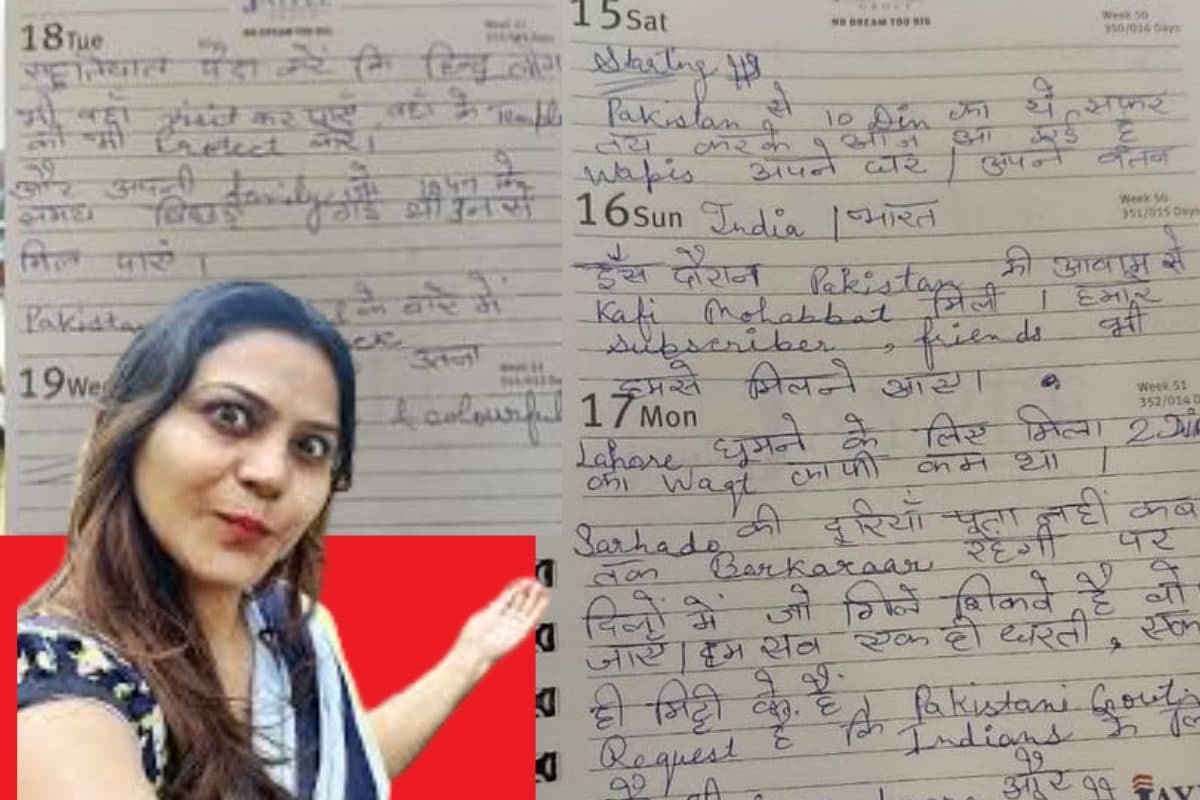 NO DREAM TOO BIG
18 Tue
सहूलियात पैदा करें कि हिन्दू लोग
भी वहाँ visit कर पाएँ वहाँ के Temple
को भी Protect करें।
और अपनी family जो 1947 के
समय बिछड़ गई थी उन से
मिल पाएं।
Pakistan के बारे में
उतना
19 Wed
& colourful
GROUP
NO DREAM TOO BIG
15 Sat
Week 50
350/016 Days
Starting
Pakistan से 10 Din का ये सफर
तय करके, आज आ गई है
Wapis अपने घर / अपने वतन
16 Sun
Week 50
351/015 Days
India / भारत
इस दौरान Pakistan की आवाम से
Kafi Mohabbat मिली। हमारे
subscriber, friends भी
हमसे मिलने आए।
17 Mon
Week 51
352/014 D
Lahore घूमने के लिए मिला 2 Din
का Waqt काफी कम था।
Sarhado की दूरियाँ पता नहीं कब
तक Barkaraar रहेगी पर
दिलों में जो गिले शिकवे है वो
जाएं। हम सब एक ही धरती, एक
ही मिट्टी के है। Pakistani Govt.
Request है कि Indians के
और